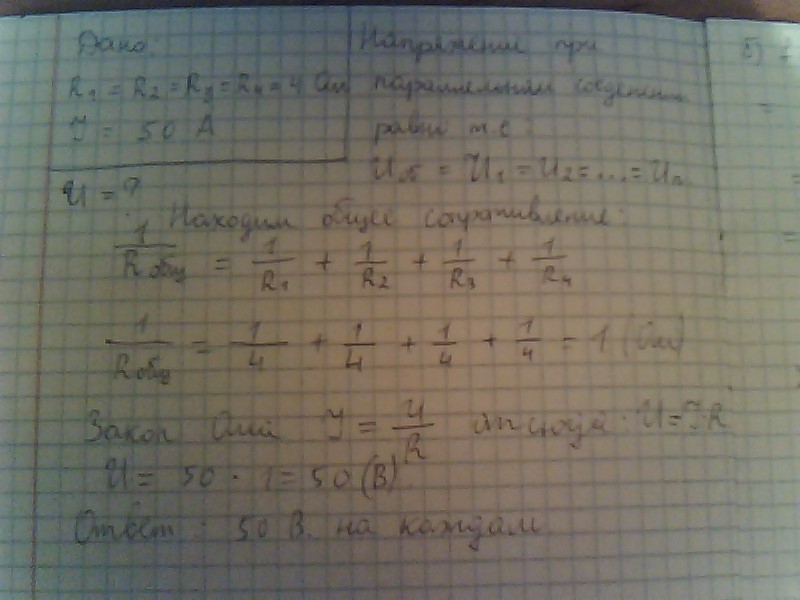 Дано:
R1 = R2 = R3 = R4 = 4 Ом
I = 50 А
U = ?
Напряжение при
параллельном соединении
равны т.е:
Uоб = U1 = U2 = ... = Un
Находим общее сопративление:
1/Rобщ = 1/R1 + 1/R2 + 1/R3 + 1/R4
1/Rобщ = 1/4 + 1/4 + 1/4 + 1/4 = 1 (Ом)
Закон Ома I = U/R отсюда U=IR
U = 50 · 1 = 50 (В)
Ответ: 50 В. на каждом
б)
=
=
=